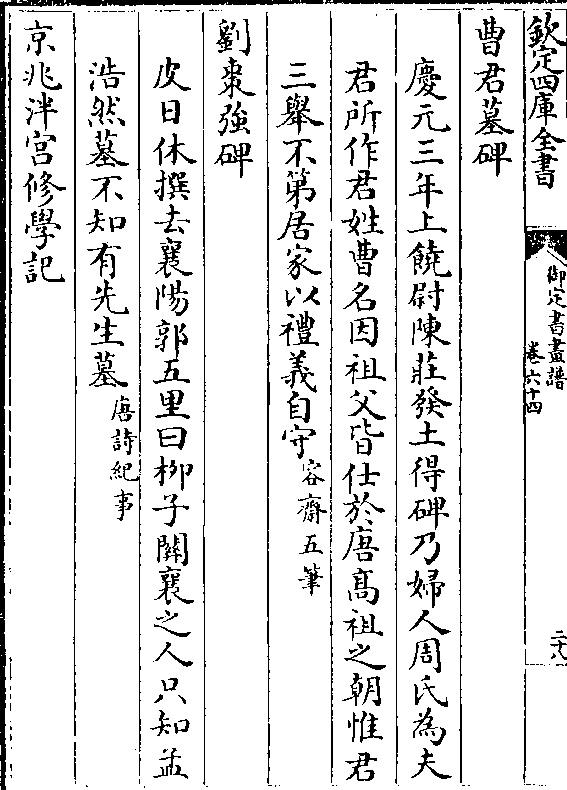 欽定四庫全書
御定書畫譜
卷六十四
二十八
曹君墓碑
慶元三年上饒尉陳莊發土得碑乃婦人周氏為夫
君所作君姓曹名因祖父皆仕於唐高祖之朝惟君
三舉不第居家以禮義自守容齋五筆
劉棗強碑
皮日休撰去襄陽郭五里曰柳子關襄之人只知孟
浩然墓不知有先生墓唐詩紀事
京兆泮宫修學記